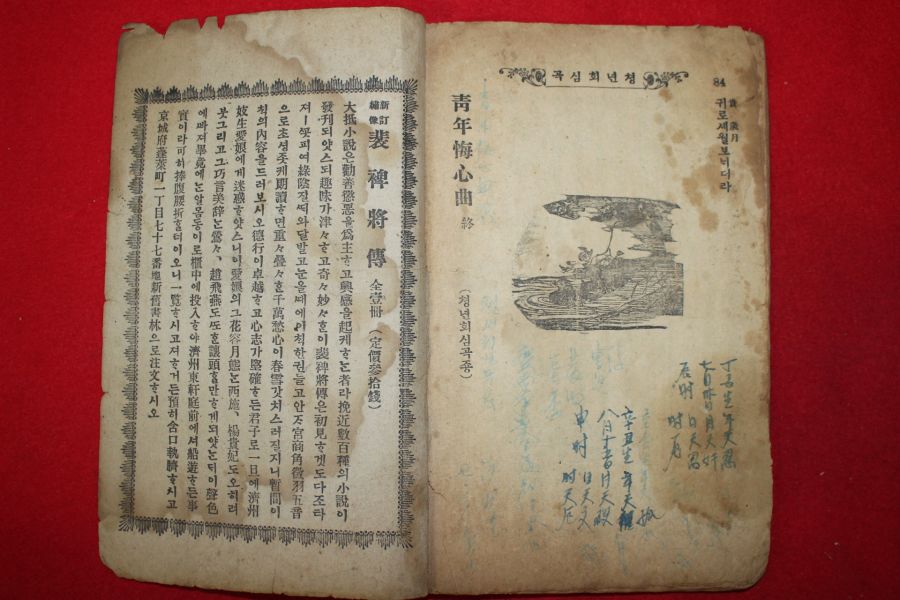 84
쳥년회심곡
貴 歲月
귀로셰월보니더라
靑年悔心曲 終
(쳥년회심곡죵)
辛丑生
申時
新訂繡像 裴裨將傳 全壹冊 (定價參拾錢)
大抵小說은勸善懲惡을爲主ᄒᆞ고興感을起케ᄒᆞᄂᆞᆫ者라挽近數百種의小說이
發刊되얏스되趣味가津々ᄒᆞ고奇々妙々ᄒᆞᆫ이裴裨將傳은初見ᄒᆞ겟도다조타
져ㅡ꼿피여綠陰질ᄯᅥ와달발고눈올ᄯᅢ에이칙한권들고안ᄌᆞ宮商角徵羽五音
으로초셩죳케朗讀ᄒᆞ면重々疊々ᄒᆞᆫ千萬愁心이春雪갓치스러질지니暫間이
칙의內容을드러보시오德行이卓越ᄒᆞ고心志가堅確ᄒᆞ든君子로一日에濟州
妓生愛娘에게迷惑ᄒᆞ얏스니이愛娘의그花容月態ᄂᆞᆫ西施、楊貴妃도오히려
붓그리고그巧言美辭ᄂᆞᆫ鶯々、趙飛燕도ᄯᅩᄒᆞᆫ讓頭ᄒᆞᆯ만ᄒᆞ게되얏ᄂᆞᆫ디이聲色
에ᄲᅡ져畢竟에ᄂᆞᆫ알몸동이로櫃中에投入ᄒᆞ야濟州東軒庭前에셔船遊ᄒᆞ든事
實이라可히捧腹腰折ᄒᆞᆯ터이오니一覽ᄒᆞ시고져ᄒᆞ거든預히含口執臍ᄒᆞ시고
京城府蓬萊町一丁目七十七番地新舊書林으로注文ᄒᆞ시오